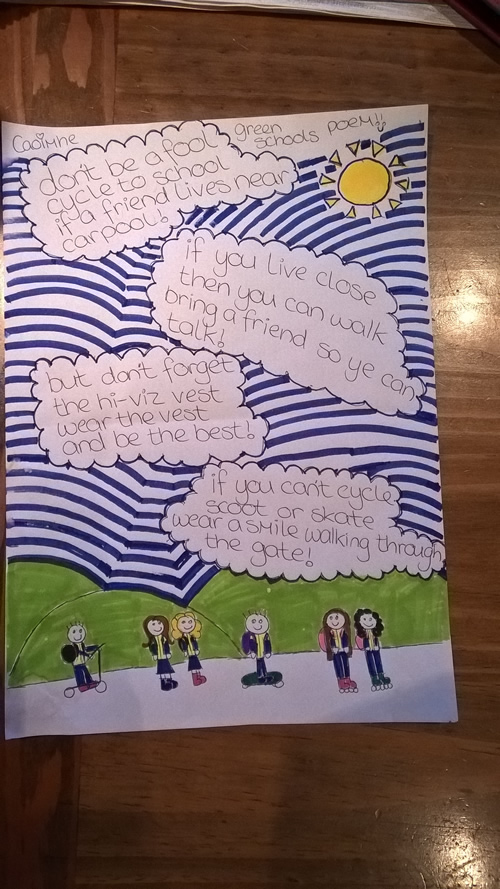 Caoimhe
green
schools poem!!
don't be a fool
cycle to school
if a friend lives near
carpool!
if you live close
then you can walk
bring a friend so ye can
talk!
but don't forget
the hi-viz vest
wear the vest
and be the best!
if you can't cycle
scoot or skate
wear a smile walking through
the gate!